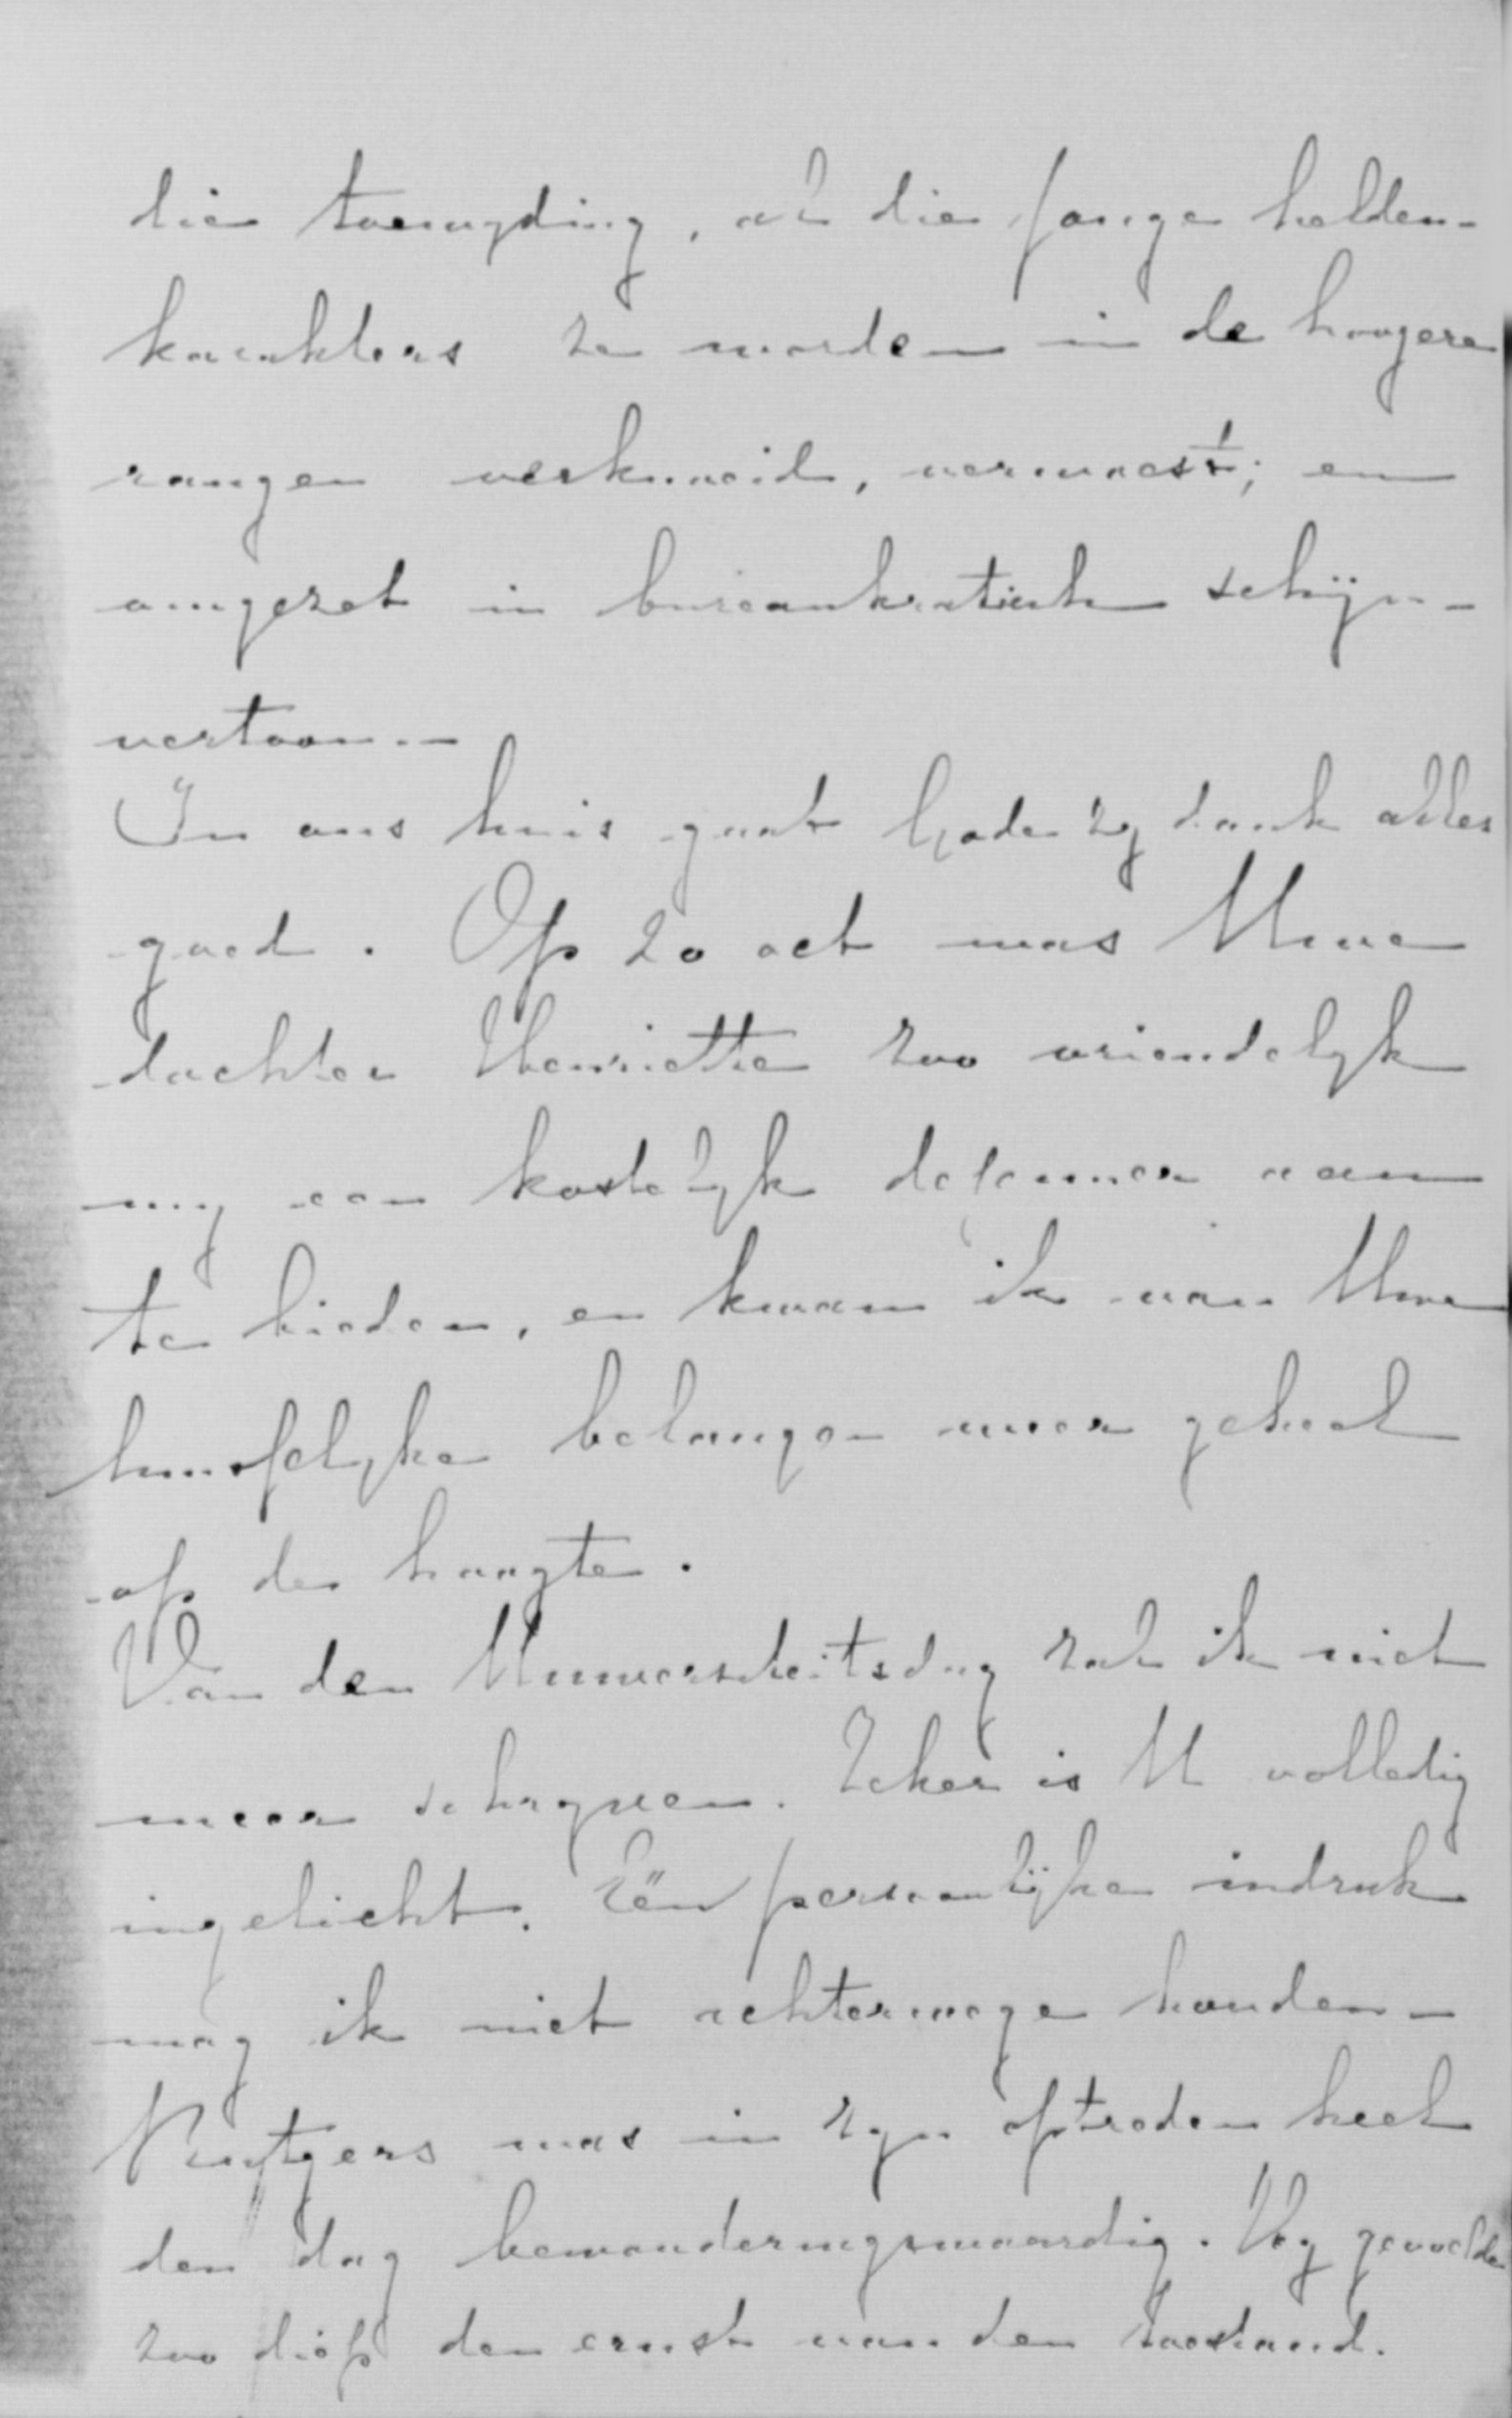 die toewyding, al die jonge helden-
karakters te worden in de hoogere
rangen verknoeid, verwoest; en
omgezet in bureaukratisch schijn-
vertoon.—
In ons huis gaat Gode zy dank alles
goed. Op 20 oct was Uwe
dochter Henriette zoo vriendelyk
my een kostelyk dejeuner aan
te bieden, en kwam ik van Uwe
huiselyke belangen weer geheel
op de hoogte.
Van den Universiteitsdag zal ik niet
meer schryven. Zeker is U volledig
ingelicht. Eén persoonlijke indruk
mag ik niet achterwege houden—
Rutgers was in zyn optreden heel
den dag bewonderingswaardig. Hy gevoelde
zoo diep den ernst van den toestand.